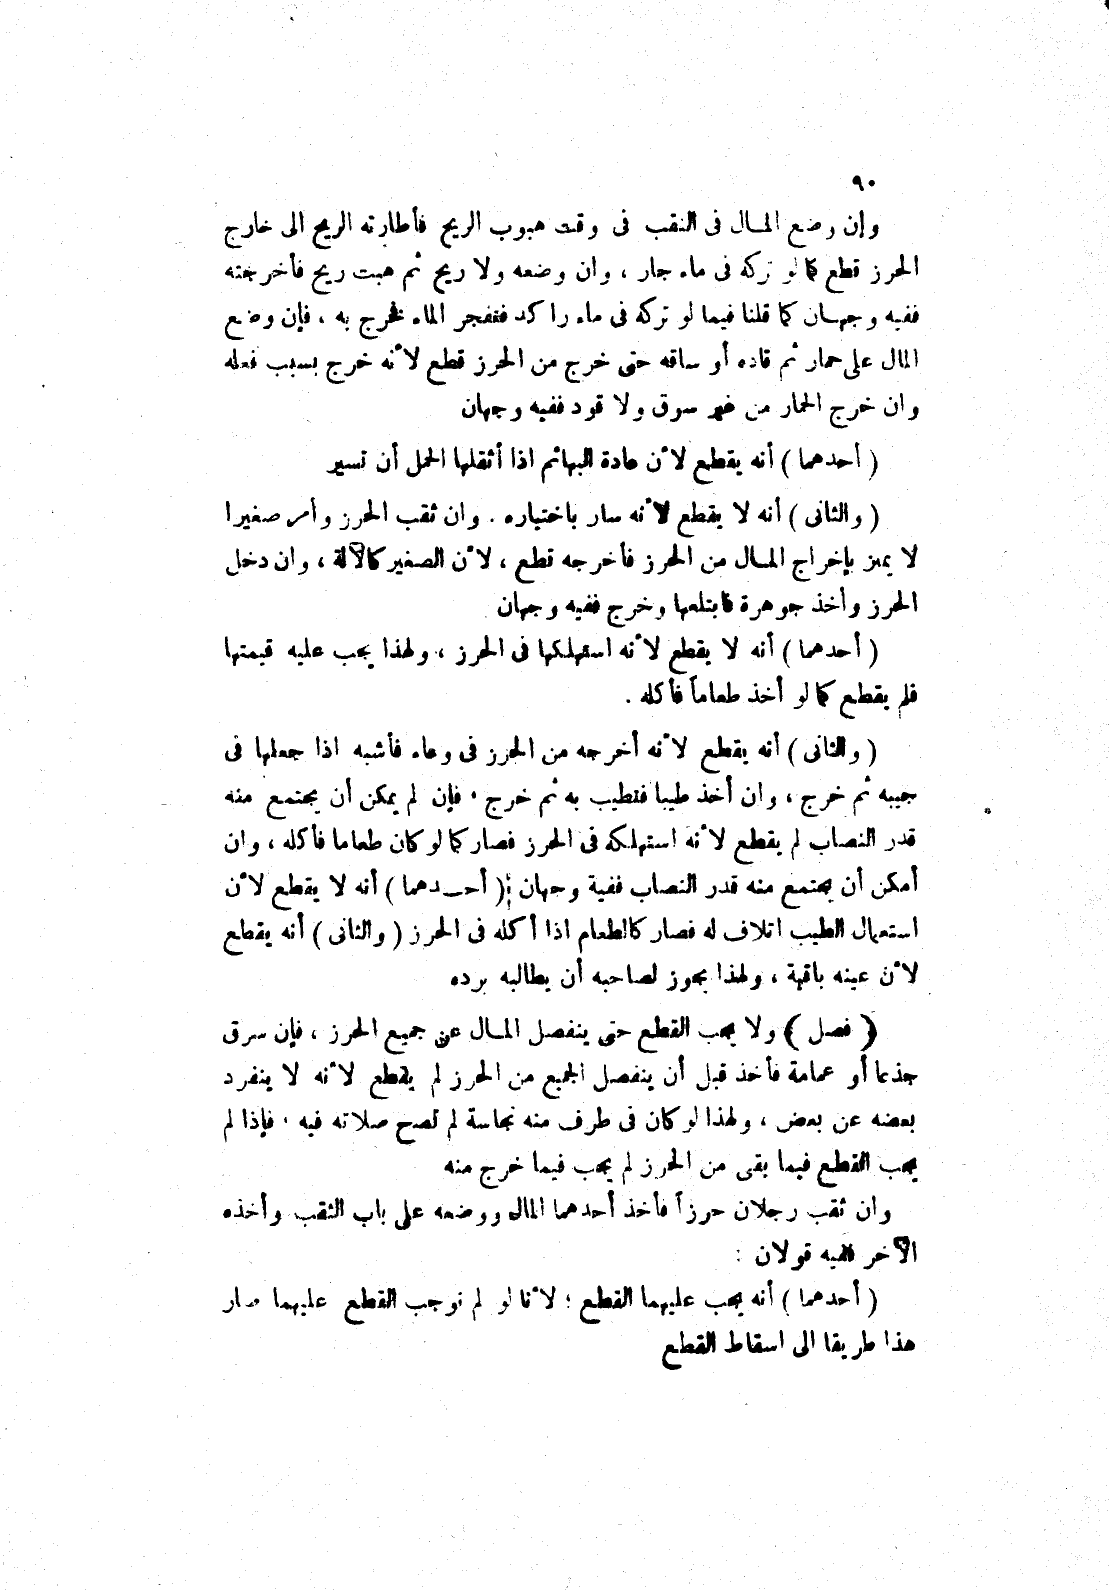 ٩٠
وإن وضع المـال فى النقب فى وقت هبوب الريح فأطارته الريح الى خارج
الحرز قطع كما لو تركه فى ماء جار ، وان وضعه ولا ريح ثم هبت ريح فأخرجته
ففيه وجهـان كما قلنا فيما لو تركه فى ماء راكد فتفجر الماء فخرج به ، فإن وضع
المال على حمار ثم قاده أو ساقه حتى خرج من الحرز قطع لأنه خرج بسبب فعله
وان خرج الحمار من غير سوق ولا قود ففيه وجهان
( أحدهما ) أنه يقطع لأن عادة البهائم اذا أثقلها الحمل أن تسير
( والثانى ) أنه لا يقطع لأنه سار باختياره . وان ثقب الحرز وأمر صغيرا
لا يميز بإخراج المـال من الحرز فأخرجه قطع ، لأن الصغير كالآلة ، وان دخل
الحرز وأخذ جوهرة فابتلعها وخرج ففيه وجهان
( أحدهما ) أنه لا يقطع لأنه استهلكها فى الحرز ، ولهذا يجب عليه قيمتها
فلم يقطع كما لو أخذ طعاماً فأكله .
( والثانى ) أنه يقطع لأنه أخرجه من الحرز فى وعاء فأشبه اذا جعلها فى
جيبه ثم خرج ، وان أخذ طيبا فتطيب به ثم خرج ٠ فإن لم يمكن أن يجتمع منه
قدر النصاب لم يقطع لأنه استهلكه فى الحرز فصار كما لو كان طعاما فأكله ، وان
أمكن أن يجتمع منه قدر النصاب ففية وجهان ( أحـدهما ) أنه لا يقطع لأن
استعمال الطيب اتلاف له فصار كالطعام اذا أكله فى الحرز ( والثانى ) أنه يقطع
لأن عينه باقية ، ولهذا يجوز لصاحبه أن يطالبه برده
( فصل ) ولا يجب القطع حتى ينفصل المـال عن جميع الحرز ، فإن سرق
جذعا أو عمامة فأخذ قبل أن ينفصل الجميع من الحرز لم يقطع لأنه لا ينفرد
بعضه عن بعض ، ولهذا لو كان فى طرف منه نجاسة لم تصح صلاته فيه ٠ فإذا لم
يجب القطع فيما بقى من الحرز لم يجب فيما خرج منه
وان ثقب رجلان حرزاً فأخذ أحدهما المال ووضعه على باب الثقب وأخذه
الآخر ففيه قولان :
( أحدهما ) أنه يجب عليهما القطع ؛ لأنا لو لم نوجب القطع عليهما صار
هذا طريقا الى اسقاط القطع